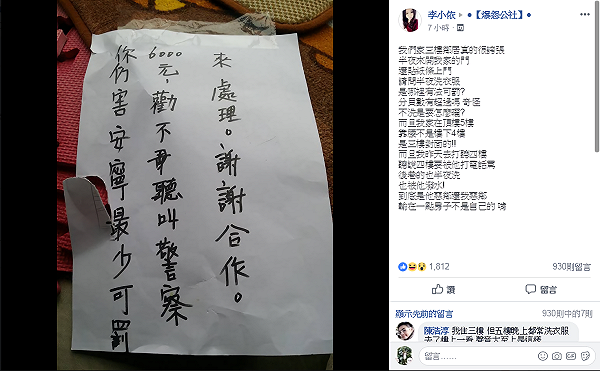 你仿害安寧最少可罰
6000元，勸不再聽叫警察
來處理。謝謝合作。
李小依 ▸ ●【爆怨公社】●
7 小時
我們家三樓鄰居真的很誇張
半夜來開我家的門
還貼紙條上門
請問半夜洗衣服
是哪裡有法可罰?
分貝數有超過嗎 奇怪
不洗是要怎麼曬?
而且我家在頂樓5樓
靠腰不是樓下4樓
是三樓對面的!!!
而且我昨天去打聽四樓
聽說四樓要被他打電話罵
後巷的也半夜洗
也被他潑水!
到底是他惡鄰還我惡鄰
輸在一點房子不是自己的 唉
1,812
930則留言
讚
留言
顯示先前的留言
930則中的7則
陳浩淳 我住三樓 但五樓晚上都常洗衣服
去了樓上一看 聲音大至上是這樣
留言……